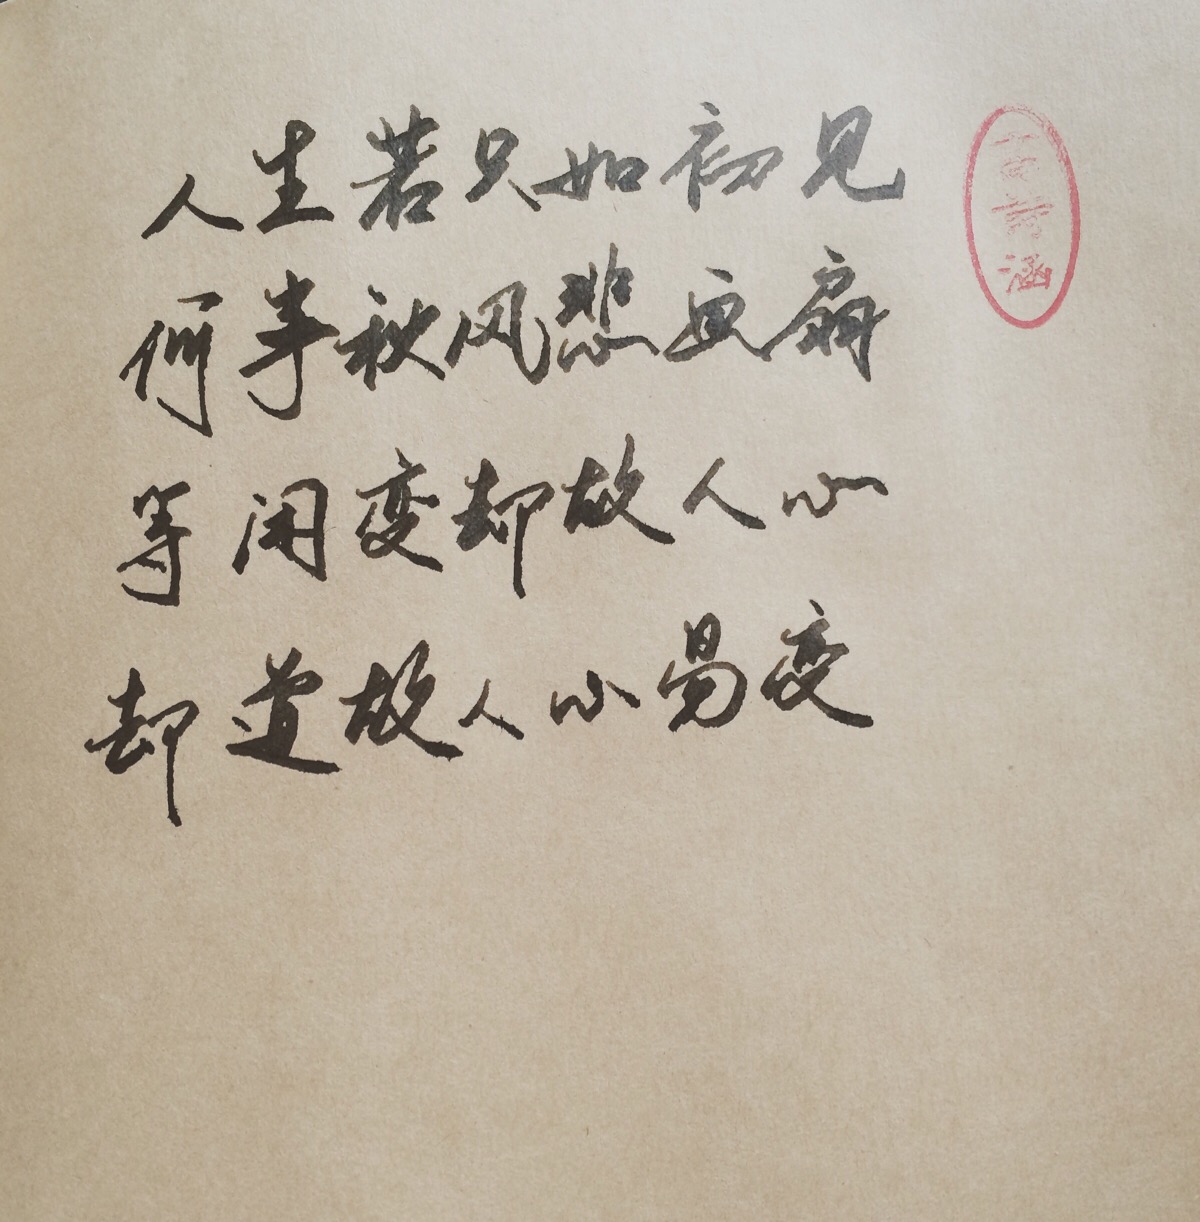 人生若只如初见
何事秋风悲画扇
等闲变却故人心
却道故人心易变
涵